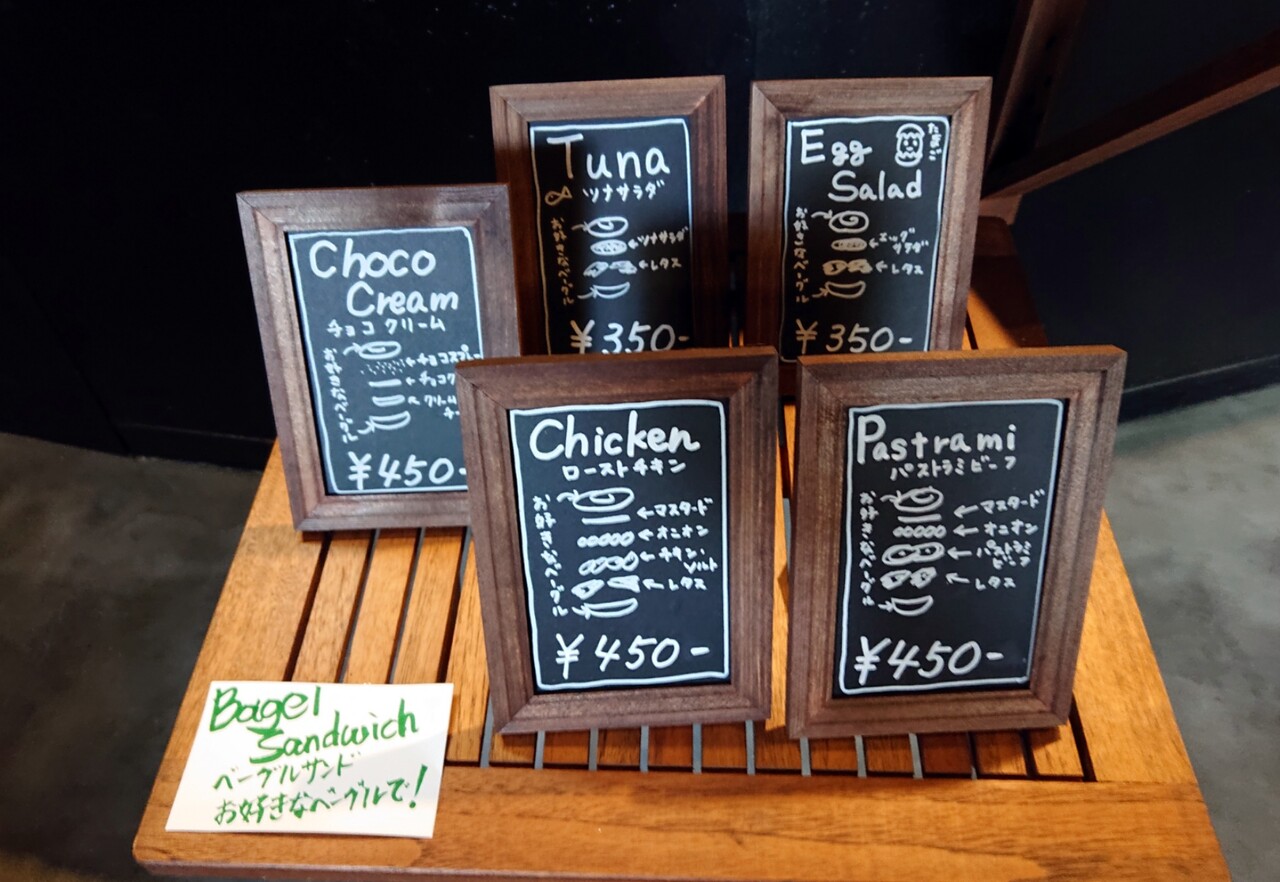 Tuna
ツナサラダ
お好きなベーグル
←ツナサラダ
←レタス
¥350-
Egg
たまご
Salad
お好きなベーグル
←エッグ
サラダ
←レタス
¥350-
Choco
Cream
チョコクリーム
お好きなベーグル
←チョコスプレー
←チョコク
クリーム
チー
¥450-
Chicken
ローストチキン
お好きなベーグル
←マスタード
←オニオン
←チキン、
ソルト
←レタス
¥450-
Pastrami
パストラミビーフ
お好きなベーグル
←マスタード
←オニオン
←パストラミ
ビーフ
←レタス
¥450-
Bagel
Sandwich
ベーグルサンド
お好きなベーグルで!